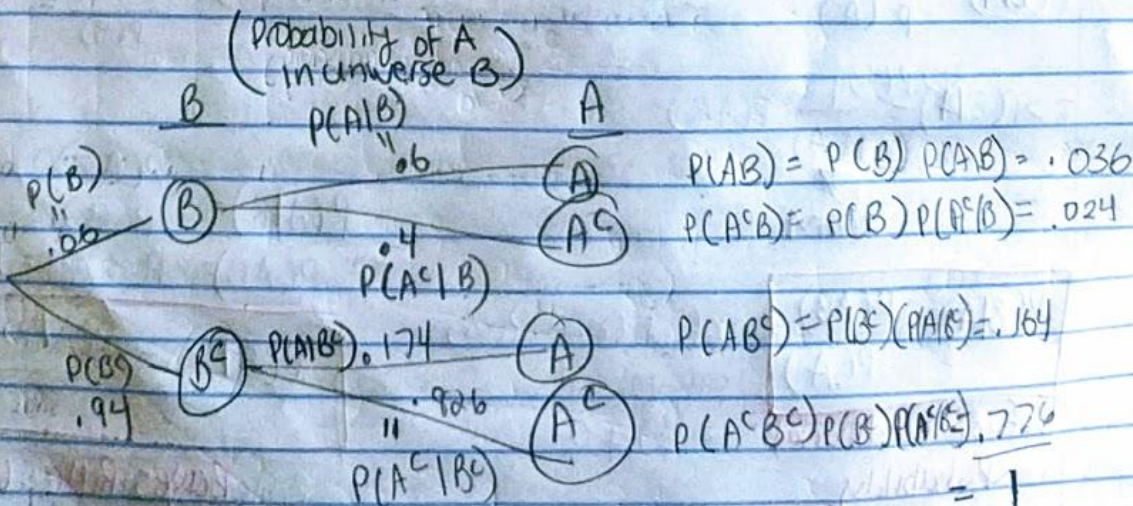 (Probability of A
in universe B)
B
P(A|B)
"
.6
A
P(B)
"
.06
B
A
P(AB) = P(B) P(A|B) = .036
A^c
P(A^cB) = P(B) P(A^c|B) = .024
.4
P(A^c|B)
P(B^c)
.94
B^c
P(A|B^c) .174
A
P(AB^c) = P(B^c)(P(A|B^c) = .164
.826
"
P(A^c|B^c)
A^c
P(A^cB^c) P(B^c) P(A^c|B^c) = .776
= 1